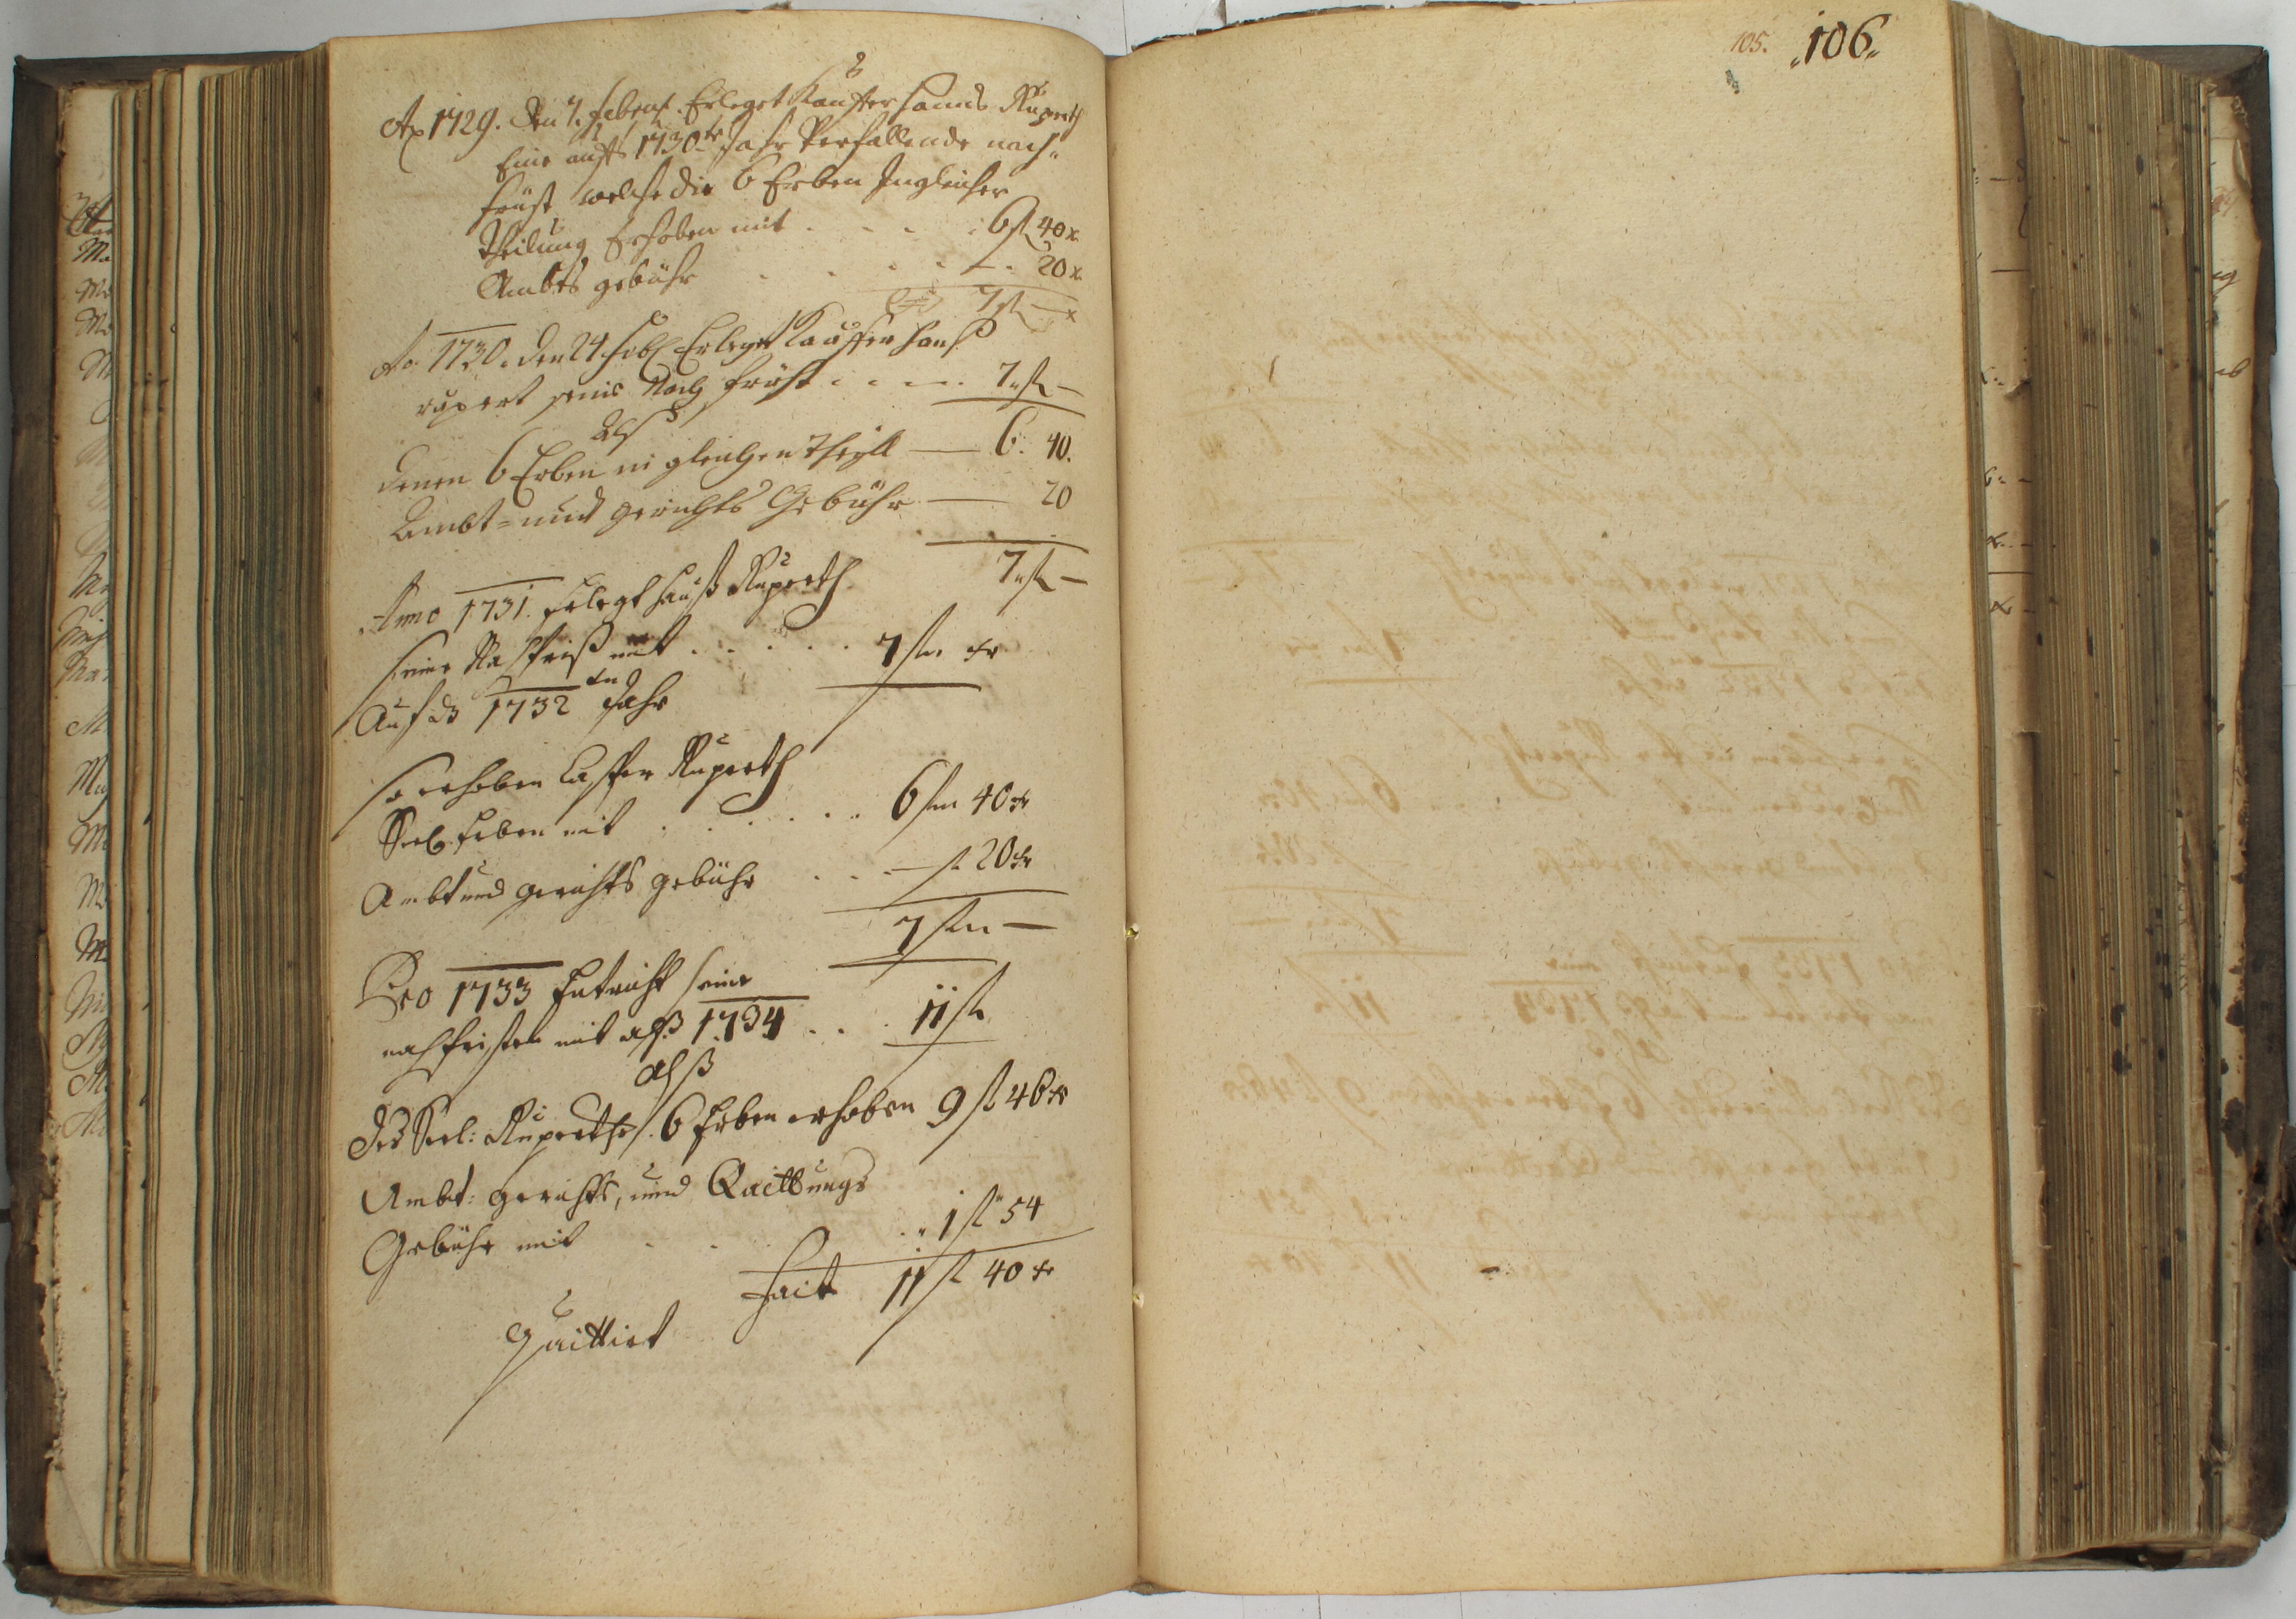 Ao 1729. den 7. Febru. Erleget Kauffer Hanns Ruperth
Eine aufs 1730te Jahr Verfallende nach„
früst welche die 6 Erben In gleicher
theilung Erhoben mit . . . . 6 fl 40 x
Ambts gebühr . . . . — . 20 x
7 fl — x
Ao. 1730. den 24 Feb. Erleget Kauffer Hanß
rupert seine Nach früst . . . . 7 „ fl —
Alß
denen 6 Erben in gleichen theyll — 6: 40.
Ambt= und gerichts Gebühr — 20
7 „ fl —
Anno 1731. Erlegt Hanß Ruperth
seine Na Frist mit . . . . . 7 fl xr
Auf ds 1732 te Jahr
so erhoben Casper Ruperth
Seel. Erben mit . . . . . . 6 fl 40 xr
Ambt und gerichts gebühr . . . — fl 20 xr
7 fl —
Pro 1733 Entricht seine
nachfristen mit auf 1734 . . . 11 fl
alß
des Seel: Ruperths 6 Erben erhoben 9 fl 46 xr
Ambt: gerichts, und Quittungs
Gebühr mit . . . . 1 fl 54
Facit 11 fl 40 xr
Quittirt
105. „106„